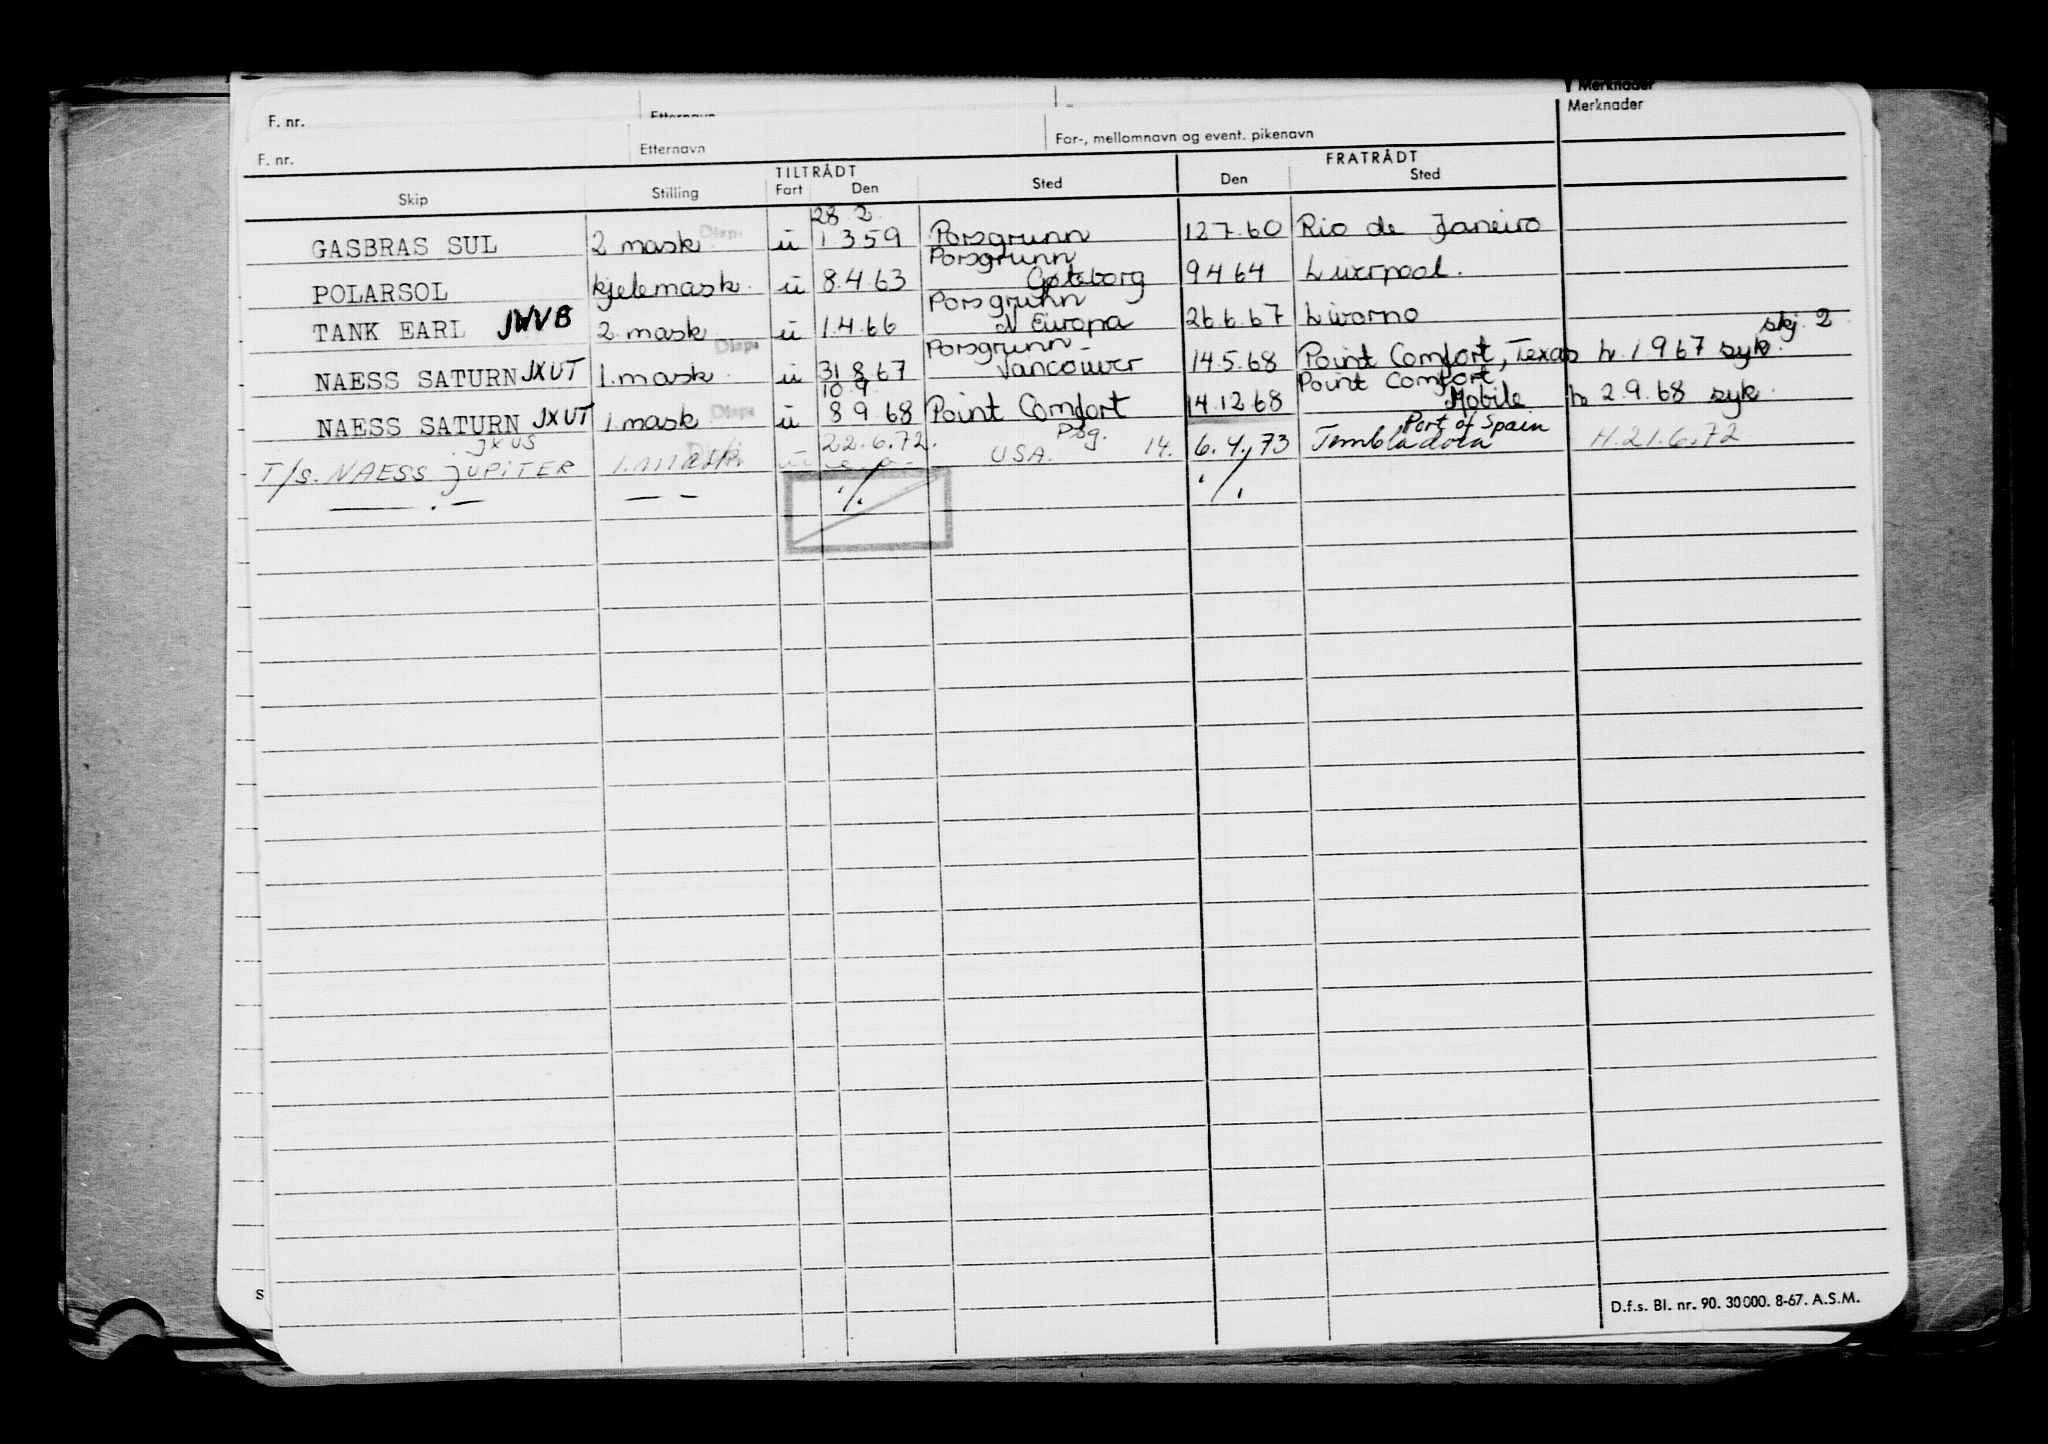 Merknader
F. nr.
Etternavn
Merknader
F. nr. Etternavn For-, mellomnavn og event. pikenavn
TILTRÅDT FRATRÅDT
Skip Stilling Fart Den Sted Den Sted
28.2.
GASBRAS SUL 2 mask Disp: u 1.3 59 Porsgrunn 12 7.60 Rio de Janeiro
Porsgrunn
POLARSOL kjelemask. u 8.4.63 Gøteborg 9 4 64 Liverpool.
Porsgrunn
TANK EARL JWVB 2. mask. u 1.4.66 d Europa 26.6.67 Livorno
Porsgrunn skj. 2
NAESS SATURN JXUT 1. mask. Disp: u 31 8.67 Vancouver 14.5.68 Point Comfort, Texas h. 1 9 67 syk.
10.9 Point Comfort
NAESS SATURN JXUT 1. mask. Disp: u 8 9.68 Point Comfort 14.12.68 Mobile h 2.9.68 syk.
JXUS 22.6.72. Psg. Port of Spain
T/S. NAESS JUPITER 1. mask. u USA. 14. 6.4.73 Tembladora H.21.6.72
— . — — — ./. ./.
S
D.f.s. Bl. nr. 90. 30000. 8-67. A.S.M.